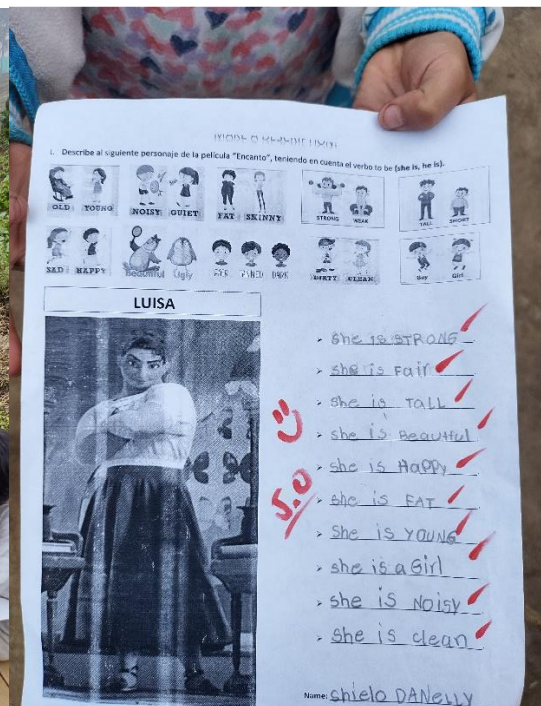 I. Describe al siguiente personaje de la película "Encanto", teniendo en cuenta el verbo to be (she is, he is).
OLD YOUNG NOISY QUIET FAT SKINNY STRONG WEAK TALL SHORT
SAD HAPPY Beautiful Ugly FAIR TANNED DARK DIRTY CLEAN Boy Girl
LUISA
She is STRONG
she is Fair
she is TALL
she is Beautiful
she is HaPPy
she is FAT
She is YOUNG
she is a Girl
she is NOISY
she is clean
5.0
Name: shielo DANELLY